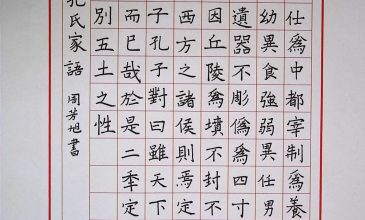 仕爲中都宰制爲養
幼異食強弱異任男
遺器不彫僞爲四寸
因丘陵爲墳不封不
西方之諸侯則焉定
子孔子對曰雖天下
而已哉於是二秊定
別五土之性
孔氏家語 周芳旭書